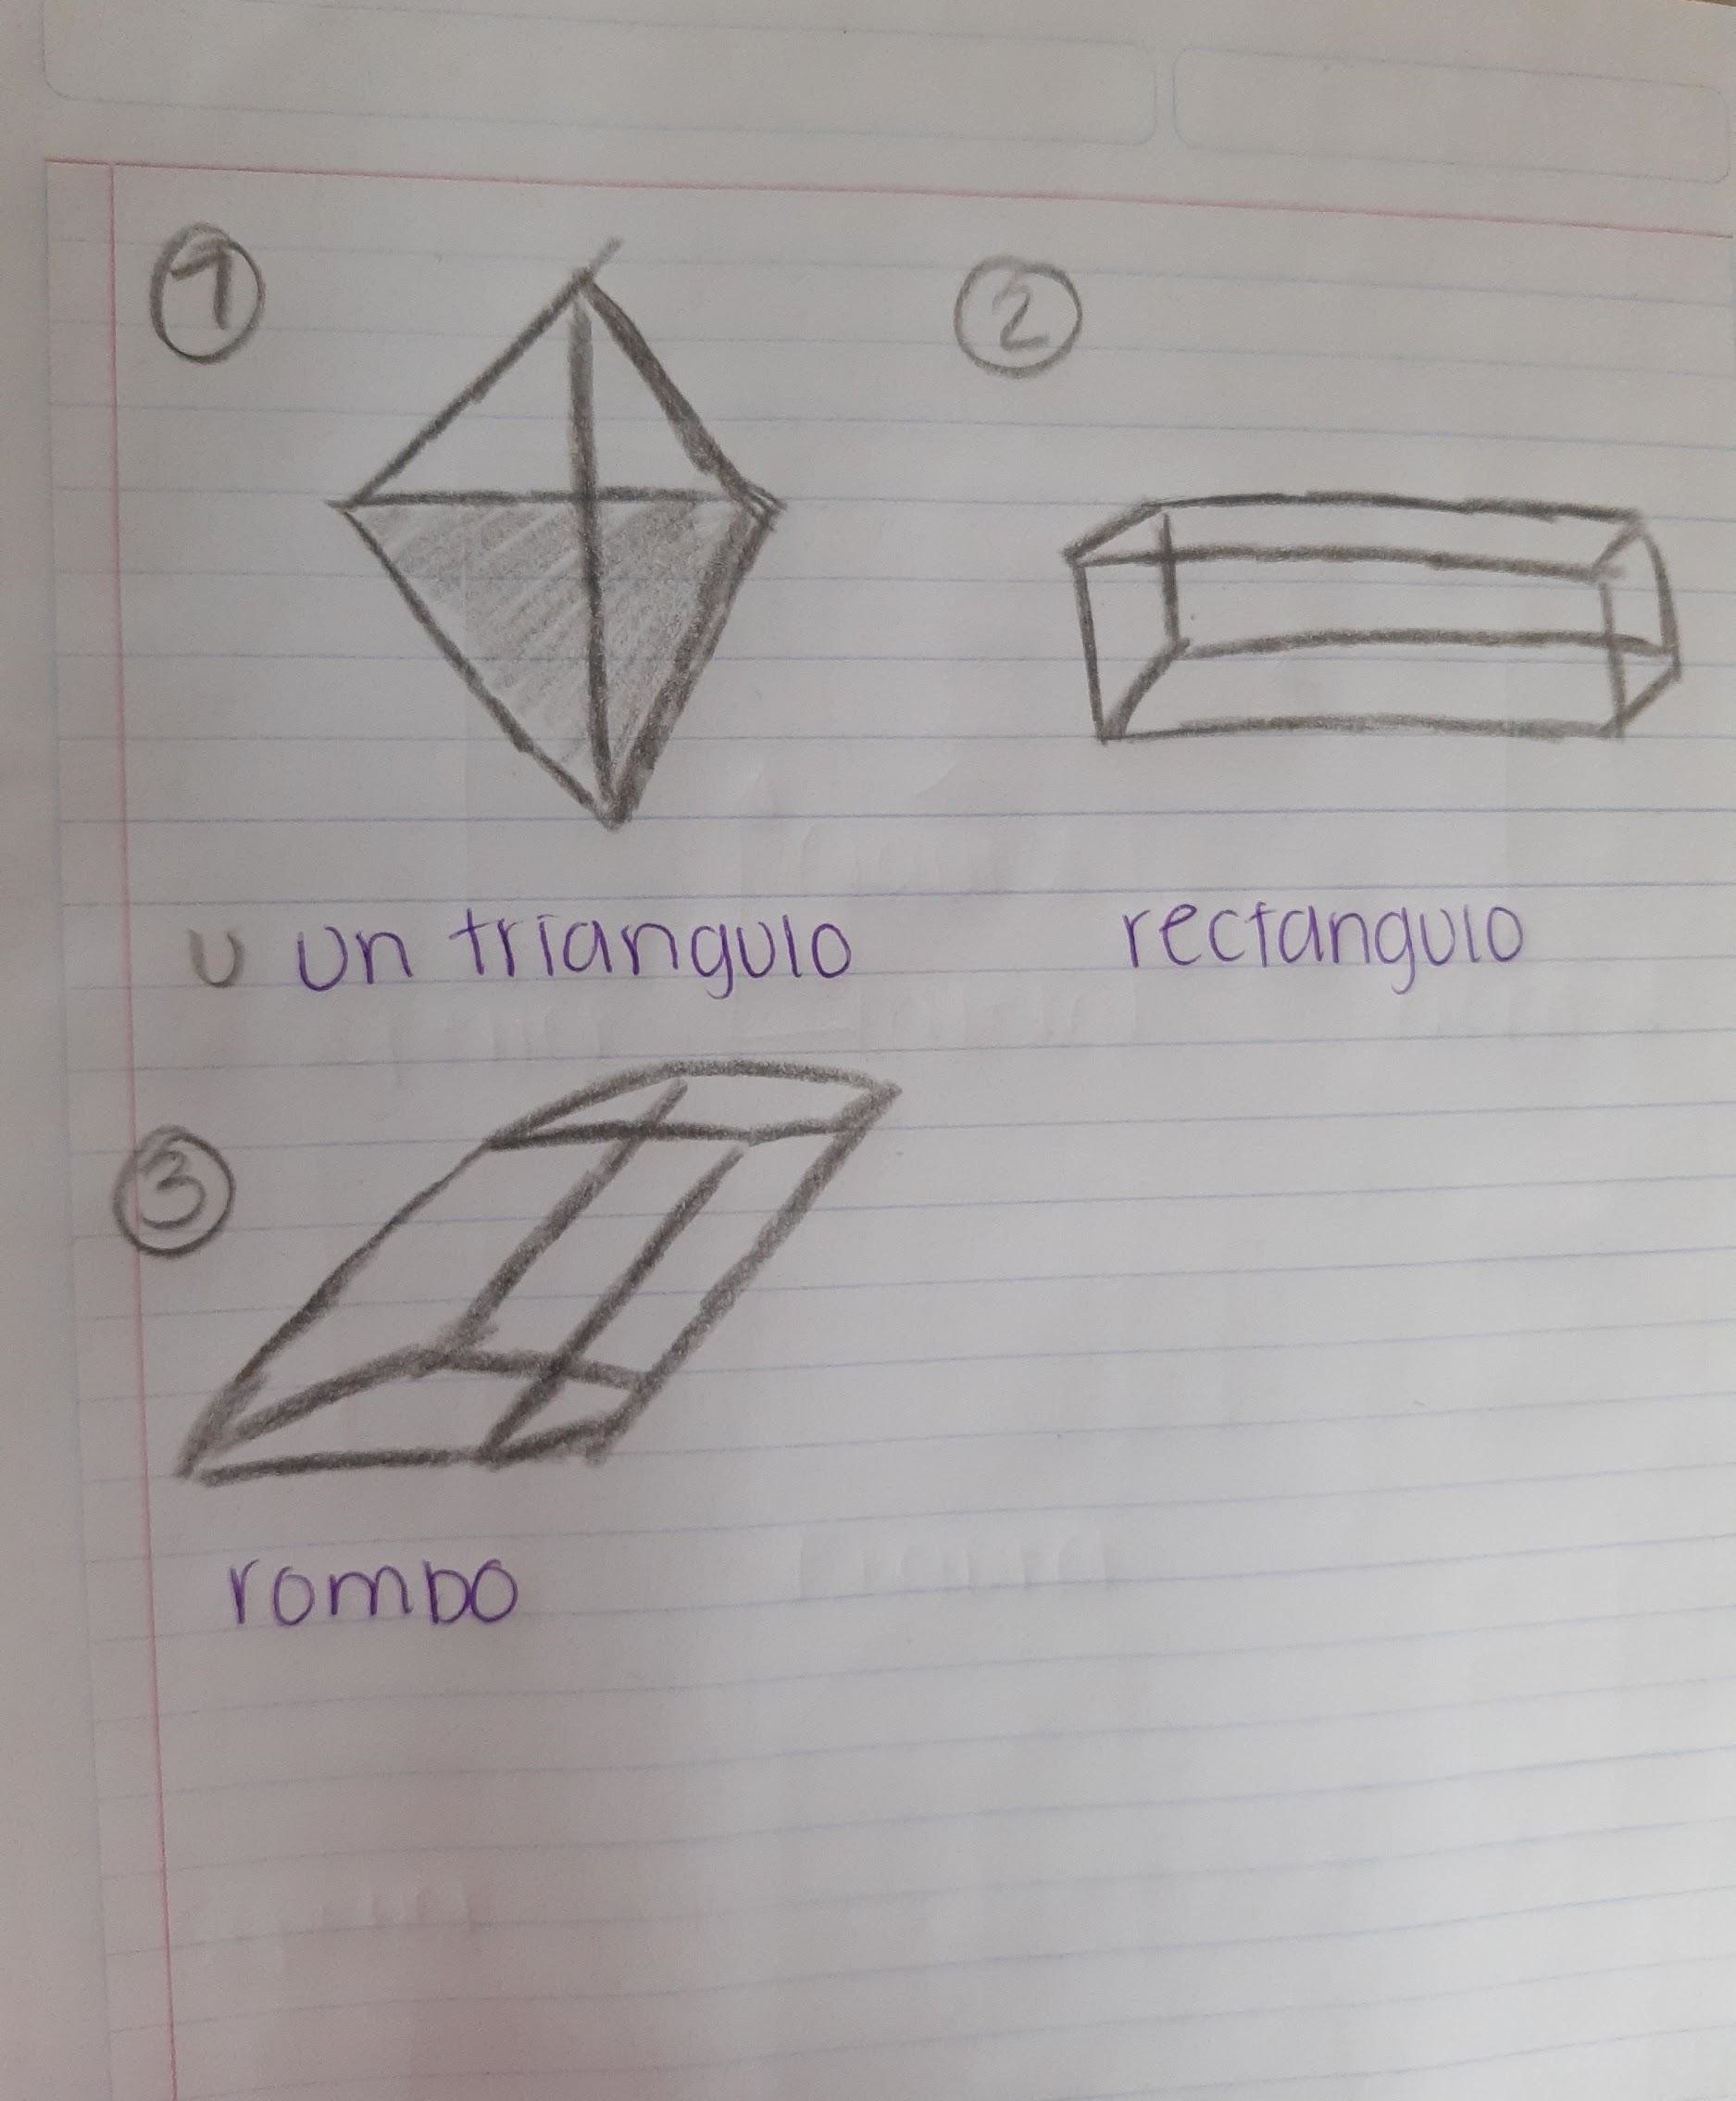 1
2
U un triangulo
rectangulo
3
rombo